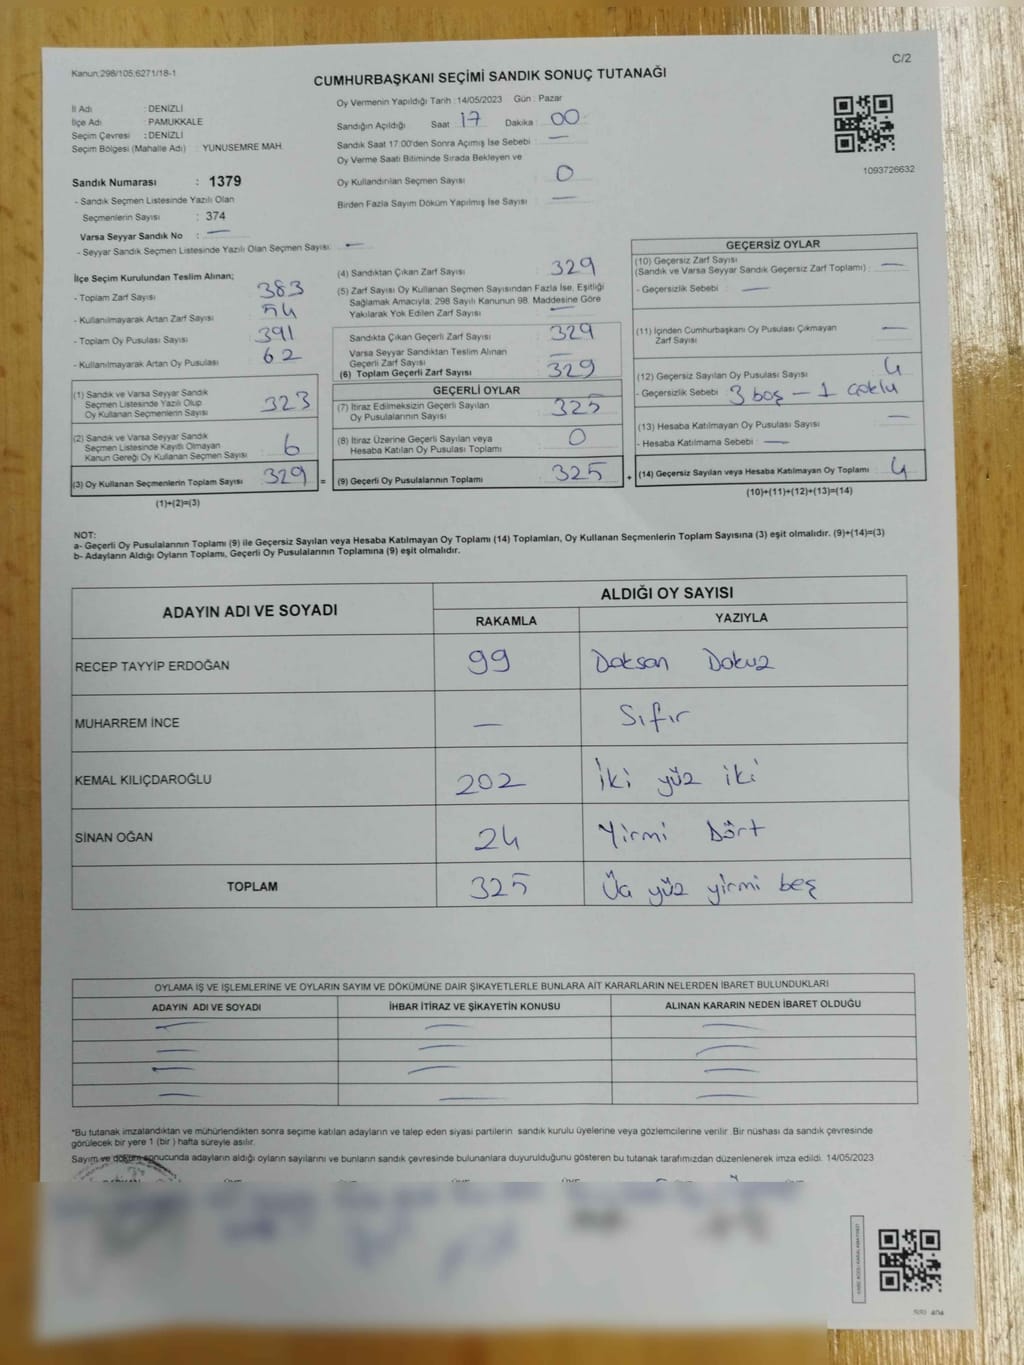 Kanun:298/105;6271/18-1
C/2
CUMHURBAŞKANI SEÇİMİ SANDIK SONUÇ TUTANAĞI
İl Adı : DENİZLİ
İlçe Adı : PAMUKKALE
Seçim Çevresi : DENİZLİ
Seçim Bölgesi (Mahalle Adı) : YUNUSEMRE MAH.
Sandık Numarası : 1379
- Sandık Seçmen Listesinde Yazılı Olan
Seçmenlerin Sayısı : 374
Varsa Seyyar Sandık No : —
- Seyyar Sandık Seçmen Listesinde Yazılı Olan Seçmen Sayısı: —
Oy Vermenin Yapıldığı Tarih :14/05/2023 Gün : Pazar
Sandığın Açıldığı Saat 17 Dakika : 00
Sandık Saat 17:00'den Sonra Açımış İse Sebebi : —
Oy Verme Saati Bitiminde Sırada Bekleyen ve
Oy Kullandırılan Seçmen Sayısı : 0
Birden Fazla Sayım Döküm Yapılmış İse Sayısı : —
1093726632
İlçe Seçim Kurulundan Teslim Alınan;
- Toplam Zarf Sayısı : 383
- Kullanılmayarak Artan Zarf Sayısı : 54
- Toplam Oy Pusulası Sayısı : 391
- Kullanılmayarak Artan Oy Pusulası : 62
(1) Sandık ve Varsa Seyyar Sandık
Seçmen Listesinde Yazılı Olup
Oy Kullanan Seçmenlerin Sayısı : 323
(2) Sandık ve Varsa Seyyar Sandık
Seçmen Listesinde Kayıtlı Olmayan
Kanun Gereği Oy Kullanan Seçmen Sayısı : 6
(3) Oy Kullanan Seçmenlerin Toplam Sayısı : 329 =
(1)+(2)=(3)
(4) Sandıktan Çıkan Zarf Sayısı : 329
(5) Zarf Sayısı Oy Kullanan Seçmen Sayısından Fazla İse, Eşitliği
Sağlamak Amacıyla; 298 Sayılı Kanunun 98. Maddesine Göre
Yakılarak Yok Edilen Zarf Sayısı : —
Sandıkta Çıkan Geçerli Zarf Sayısı : 329
Varsa Seyyar Sandıktan Teslim Alınan
Geçerli Zarf Sayısı : —
(6) Toplam Geçerli Zarf Sayısı : 329
GEÇERLİ OYLAR
(7) İtiraz Edilmeksizin Geçerli Sayılan
Oy Pusulalarının Sayısı : 325
(8) İtiraz Üzerine Geçerli Sayılan veya
Hesaba Katılan Oy Pusulası Toplamı : 0
(9) Geçerli Oy Pusulalarının Toplamı : 325 +
GEÇERSİZ OYLAR
(10) Geçersiz Zarf Sayısı
(Sandık ve Varsa Seyyar Sandık Geçersiz Zarf Toplamı) : —
- Geçersizlik Sebebi : —
(11) İçinden Cumhurbaşkanı Oy Pusulası Çıkmayan
Zarf Sayısı : —
(12) Geçersiz Sayılan Oy Pusulası Sayısı : 4
- Geçersizlik Sebebi : 3 boş – 1 çoklu
(13) Hesaba Katılmayan Oy Pusulası Sayısı : —
- Hesaba Katılmama Sebebi : —
(14) Geçersiz Sayılan veya Hesaba Katılmayan Oy Toplamı : 4
(10)+(11)+(12)+(13)=(14)
NOT:
a- Geçerli Oy Pusulalarının Toplamı (9) ile Geçersiz Sayılan veya Hesaba Katılmayan Oy Toplamı (14) Toplamları, Oy Kullanan Seçmenlerin Toplam Sayısına (3) eşit olmalıdır. (9)+(14)=(3)
b- Adayların Aldığı Oyların Toplamı, Geçerli Oy Pusulalarının Toplamına (9) eşit olmalıdır.
ADAYIN ADI VE SOYADI
ALDIĞI OY SAYISI
RAKAMLA YAZIYLA
RECEP TAYYİP ERDOĞAN 99 Doksan Dokuz
MUHARREM İNCE — Sıfır
KEMAL KILIÇDAROĞLU 202 İki yüz iki
SİNAN OĞAN 24 Yirmi Dört
TOPLAM 325 Üç yüz yirmi beş
OYLAMA İŞ VE İŞLEMLERİNE VE OYLARIN SAYIM VE DÖKÜMÜNE DAİR ŞİKAYETLERLE BUNLARA AİT KARARLARIN NELERDEN İBARET BULUNDUKLARI
ADAYIN ADI VE SOYADI İHBAR İTİRAZ VE ŞİKAYETİN KONUSU ALINAN KARARIN NEDEN İBARET OLDUĞU
— — —
— — —
— — —
— — —
*Bu tutanak imzalandıktan ve mühürlendikten sonra seçime katılan adayların ve talep eden siyasi partilerin sandık kurulu üyelerine veya gözlemcilerine verilir. Bir nüshası da sandık çevresinde
görülecek bir yere 1 (bir ) hafta süreyle asılır.
Sayım ve döküm sonucunda adayların aldığı oyların sayılarını ve bunların sandık çevresinde bulunanlara duyurulduğunu gösteren bu tutanak tarafımızdan düzenlenerek imza edildi. 14/05/2023